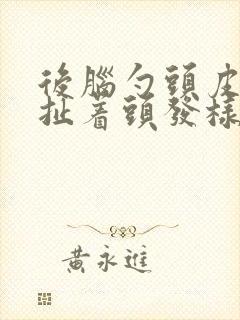 後腦勺頭皮
扯着頭發樣
黃永進